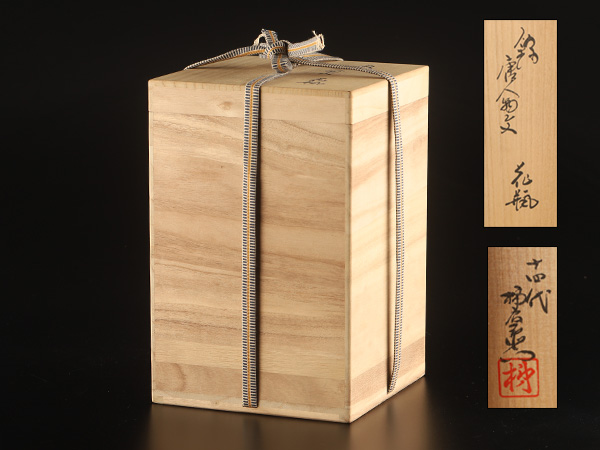 錦
唐人物文
花瓶
十四代
柿右衛門
柿